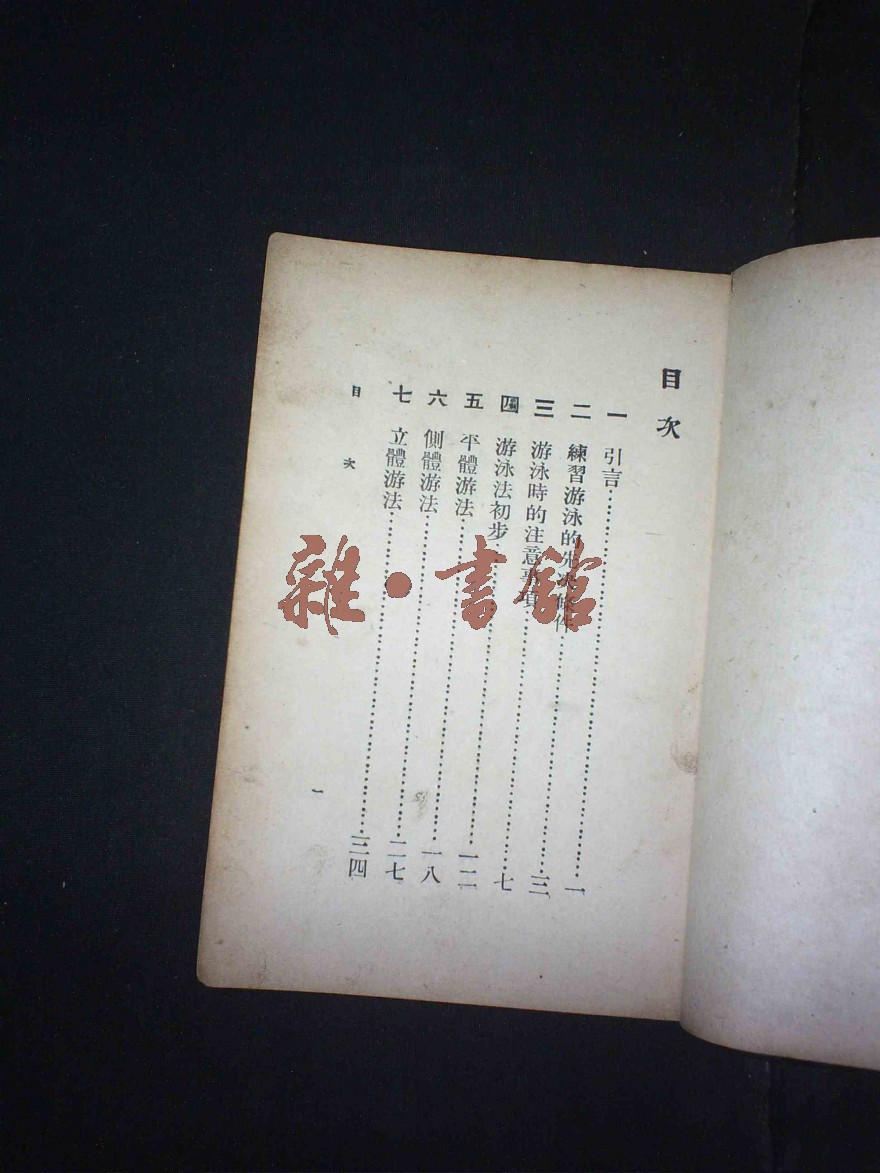 目次
一 引言……一
二 練習游泳的先決條件……三
三 游泳時的注意事項……七
四 游泳法初步……一二
五 平體游法……一八
六 側體游法……二七
七 立體游法……三四
目 次
一
雜·書館